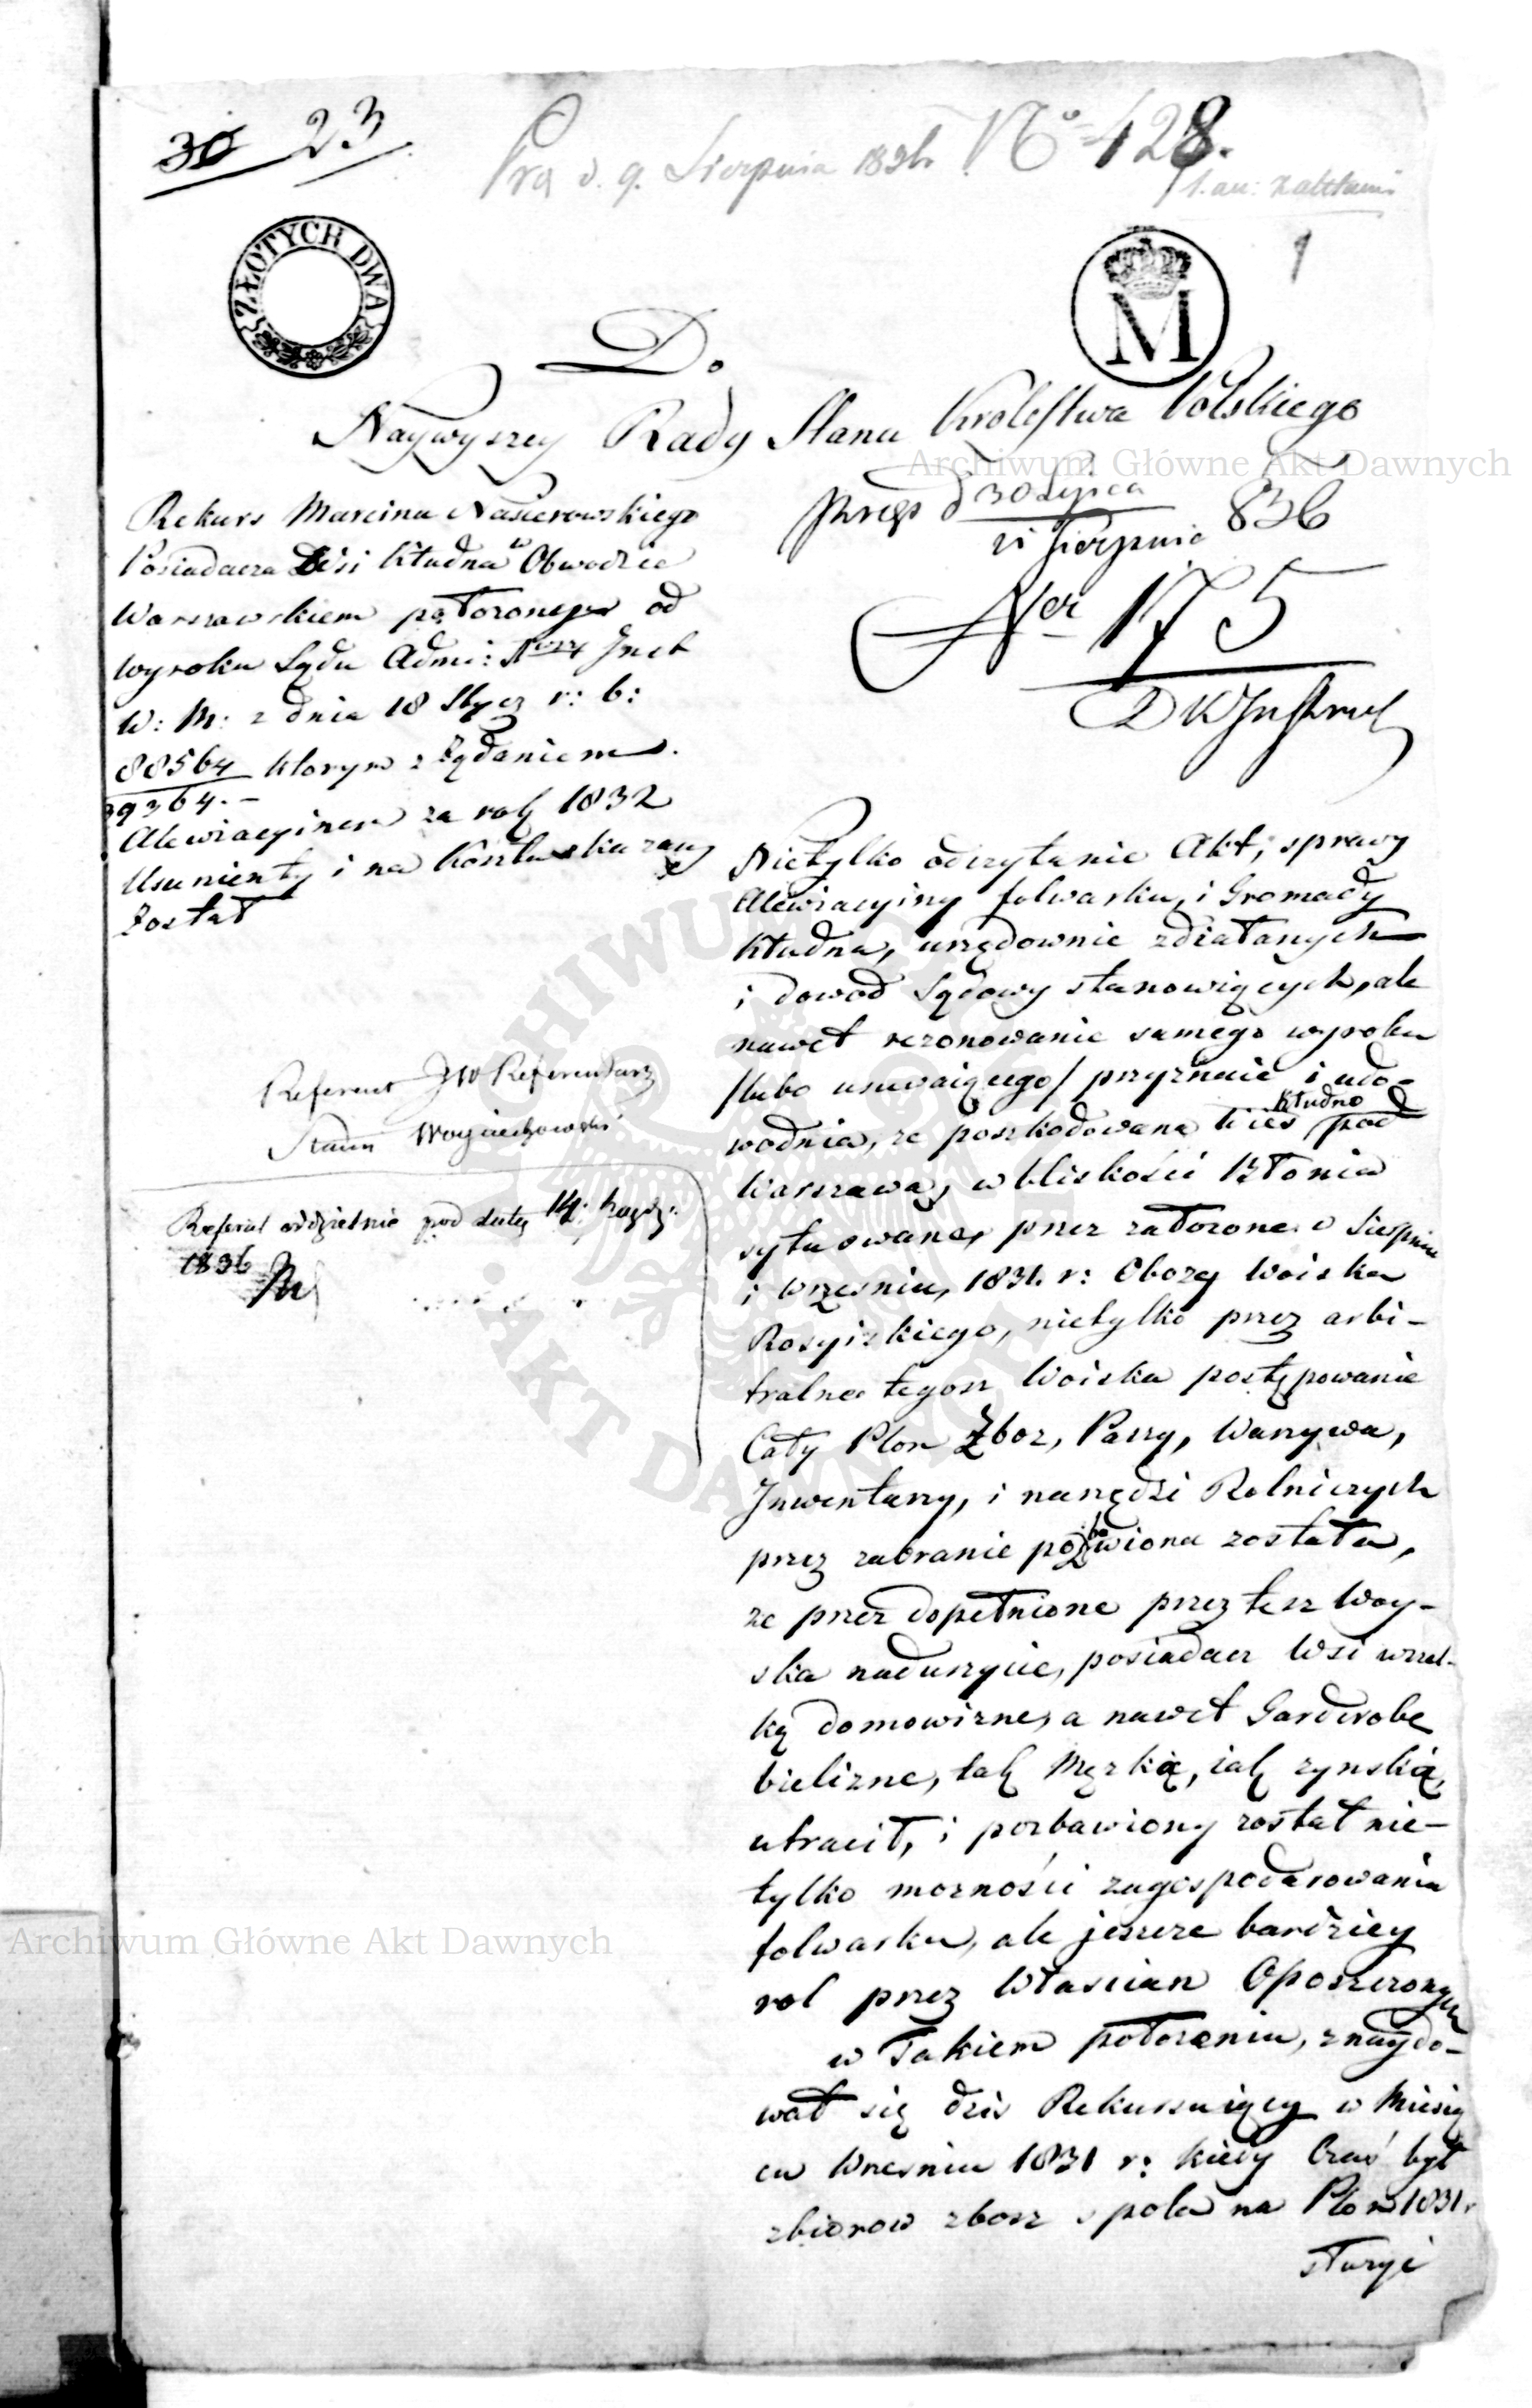 30 23.
Prą d. 9. Sierpnia 1836. No 428.
ZŁOTYCH DWA
M
1
Do
Naywyszey Rady Stanu Królestwa Polskiego
Archiwum Główne Akt Dawnych
d 30 Lipca
11 Sierpnia 836
Ner 175
Rekurs Marcina Nasierowskiego
Posiadacza Wsi Kłudna w Obwodzie
Warszawskiem położonego od
wyroku Sądu Admi: Inst
W: M: z dnia 18 Stycz r: b:
88564
39364.-
ktorym z żądaniem
Alewiacyinem za rok 1832
Usunienty i na Koszta skazany
został
Referent JW Referendarz
Stanu Woyciechowski
Referat oddzielnie pod datą 14.
1836
Nietylko odczytanie Akt, sprawy
Alewiacyiny folwarku, i Gromady
Kłudna, urzędownie zdiałanych
i dowod Sądowy stanowiących, ale
nawet rezonowanie samego wyroku
/lubo usuwaiącego/ przyznaie i udo-
wodnia, ze poszkodowana Wies Kłudno pod
Warszawą, w bliskości Błonia
sytuowana, przez załozone w Sierpniu
i Wrzesniu, 1831. r: Obozy Woiska
Rosyiskiego, nietylko przez arbi-
tralne tegosz Woiska postępowanie
Cały Plon Zboz, Paszy, Warzywa,
Inwentarzy, i narzędzi Rolniczych
przez zabranie pozbawiona została,
ze przez dopełnione przez tesz Woy-
ska naduzycie, posiadacz Wsi wszel-
ką domowiznę, a nawet Garderobe
bielizne, tak Męzką, iak zynską,
utracił, i pozbawiony został nie-
tylko moznosci zagospodarowania
folwarku, ale jeszcze bardziey
rol przez Włascian Oposzczonych
w Takiem położeniu, znaydo-
wał się dzis Rekursuiący w Miesią
cu Wrzesniu 1831 r: kiedy Czas był
zbiorow zbosz z pola na Plon 1831 r
starzi
ARCHIWUM GŁÓWNE AKT DAWNYCH
Archiwum Główne Akt Dawnych